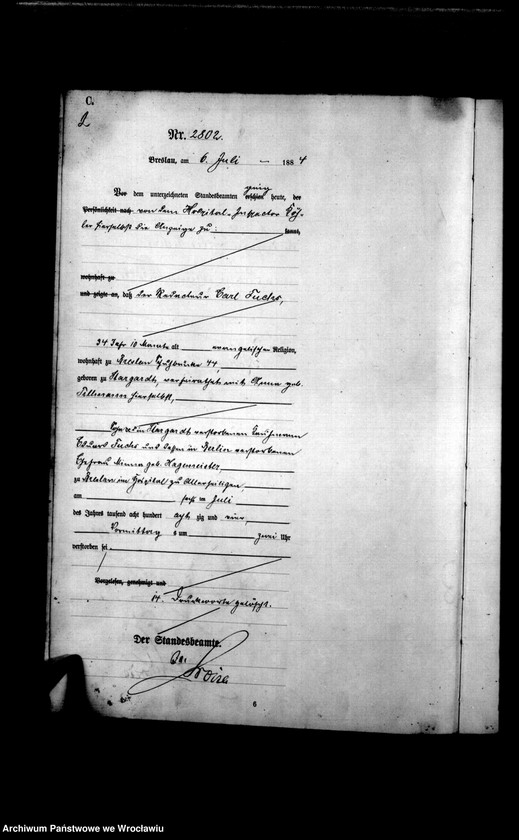 C.
2
Nr. 2802.
Breslau, am 6. Juli 1884
ging
Vor dem unterzeichneten Standesbeamten erschien heute, der
Persönlichkeit nach von dem Hospital-Inspector
hierselbst die Anzeige zu kannt,
wohnhaft zu
und zeigte an, daß der Redacteur Carl Fuchs,
34 Jahr 10 Monate alt evangelischer Religion,
wohnhaft zu Breslau Schuhbrücke 44,
geboren zu Stargardt, verheirathet mit Anna geb.
Tillmann hierselbst,
Sohn des in Stargardt verstorbenen Kaufmann
Eduard Fuchs und dessen in Berlin verstorbenen
Ehefrau Minna geb. Hagemeister,
zu Breslau im Hospital zu Allerheiligen,
am sechsten Juli
des Jahres tausend acht hundert acht zig und vier,
Vormittag s um zwei Uhr
verstorben sei
Vorgelesen, genehmigt und
14 Druckworte gelöscht.
Der Standesbeamte.
6
Archiwum Państwowe we Wrocławiu